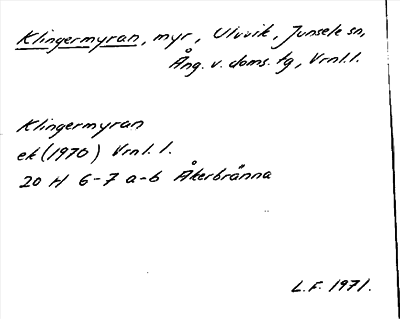 Klingermyran, myr, Ulvvik, Junsele sn,
Ång. v. doms. tg, Vrnl. l.
Klingermyran
ek (1970) Vrnl. l.
20 H 6-7 a-b Åkerbränna
L.F. 1971.